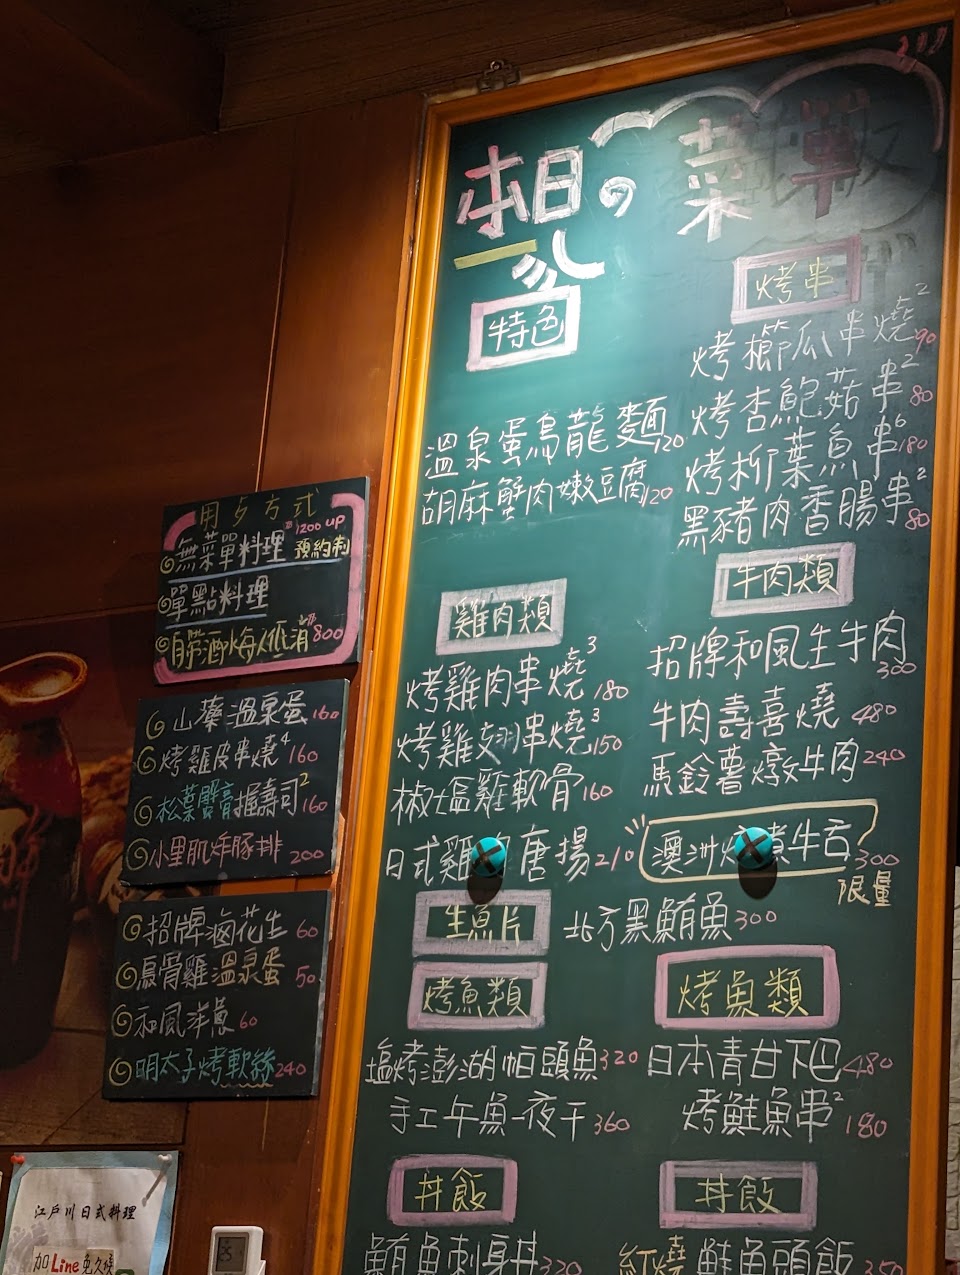 本日の菜單
特色
溫泉蛋烏龍麵120
胡麻蟹肉嫩豆腐120
烤串
烤櫛瓜串燒2 90
烤杏鮑菇串2 80
烤柳葉魚串6 180
黑豬肉香腸串2 80
雞肉類
烤雞肉串燒3 180
烤雞翅串燒3 150
椒塩雞軟骨160
日式雞 唐揚210
牛肉類
招牌和風生牛肉300
牛肉壽喜燒480
馬鈴薯燉牛肉240
澳洲 煮牛舌300
限量
生魚片
北方黑鮪魚300
烤魚類
塩烤澎湖帕頭魚320
手工午魚一夜干360
烤魚類
日本青甘下巴480
烤鮭魚串2 180
丼飯
鮪魚刺身丼320
丼飯
紅燒鮭魚頭飯350
用歺方式
無菜單料理1200 up
預約制
單點料理
自帶酒水每人低消800
山藥溫泉蛋160
烤雞皮串燒4 160
松葉蟹膏握壽司2 160
小里肌炸豚排 200
招牌滷花生 60
烏骨雞溫泉蛋50
和風洋蔥60
明太子烤軟絲240
江戶川日式料理
加Line免久候